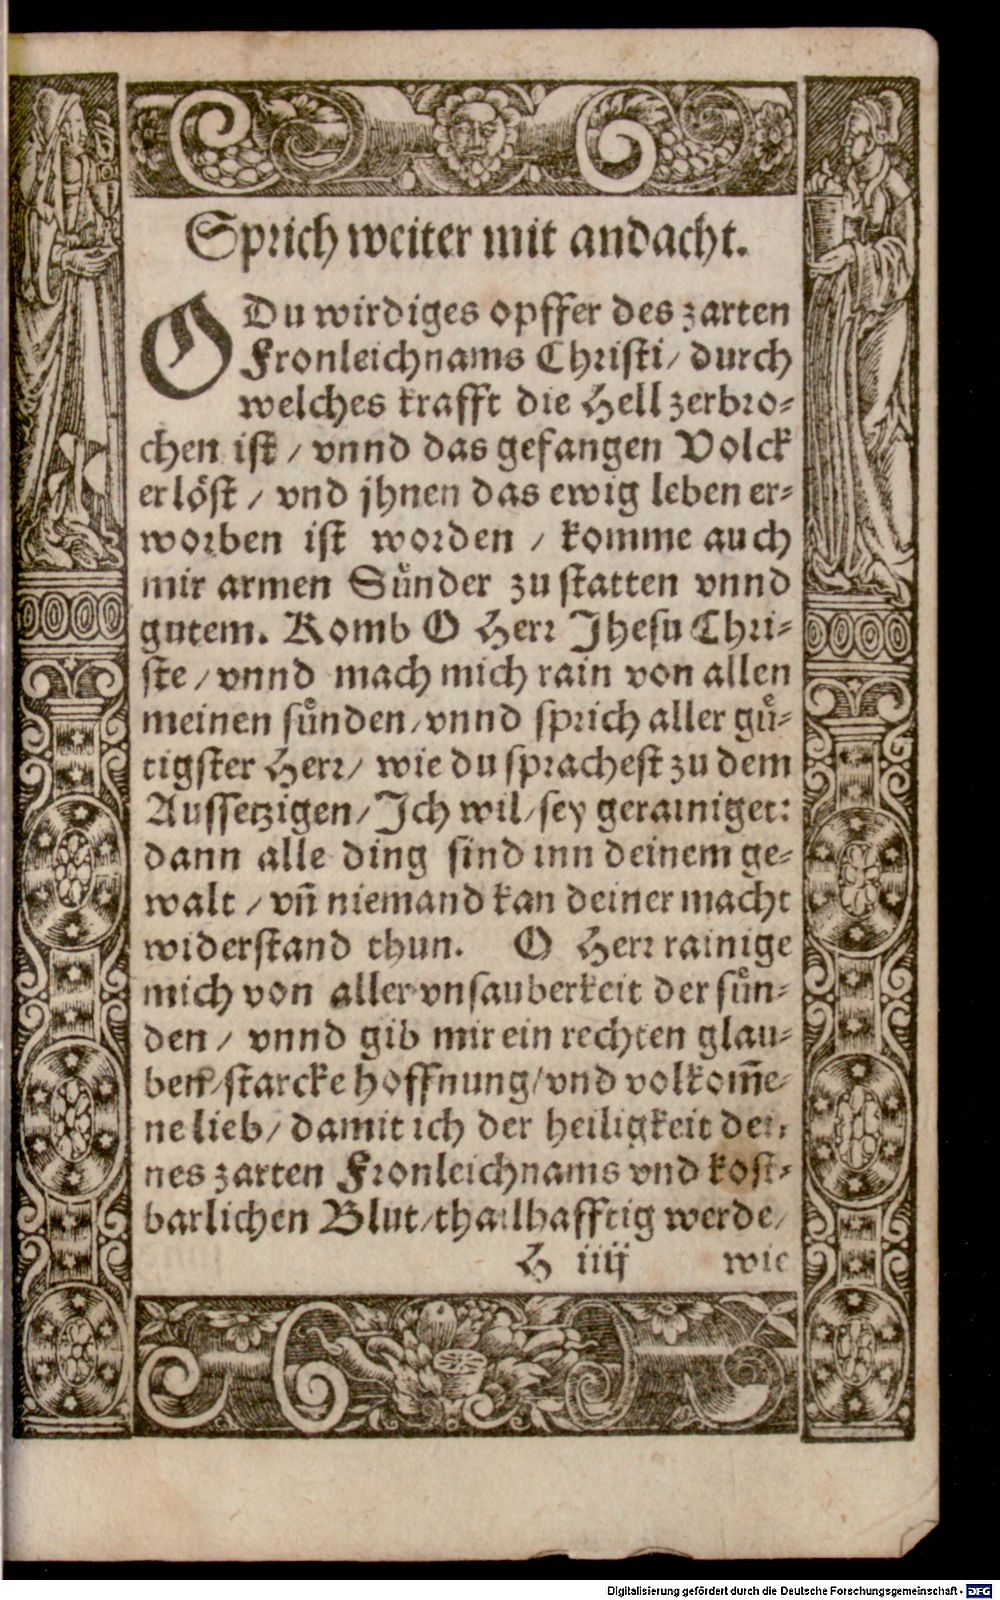 Sprich weiter mit andacht.
O Du wirdiges opffer des zarten
Fronleichnams Christi/ durch
welches krafft die Hell zerbro-
chen ist / vnnd das gefangen Volck
erlöst / vnd jhnen das ewig leben er-
worben ist worden / komme auch
mir armen Sünder zu statten vnnd
gutem. Komb O Herr Jhesu Chri-
ste / vnnd mach mich rain von allen
meinen sünden/vnnd sprich aller gü-
tigster Herr/ wie du sprachest zu dem
Aussetzigen/ Ich wil/sey gerainiget:
dann alle ding sind inn deinem ge-
walt / vñ niemand kan deiner macht
widerstand thun. O Herr rainige
mich von aller vnsauberkeit der sün-
den / vnnd gib mir ein rechten glau-
ben/starcke hoffnung/vnd volkom̃e-
ne lieb/ damit ich der heiligkeit dei-
nes zarten Fronleichnams vnd kost-
barlichen Blut/thailhafftig werde/
H iiij wie
Digitalisierung gefördert durch die Deutsche Forschungsgemeinschaft - DFG